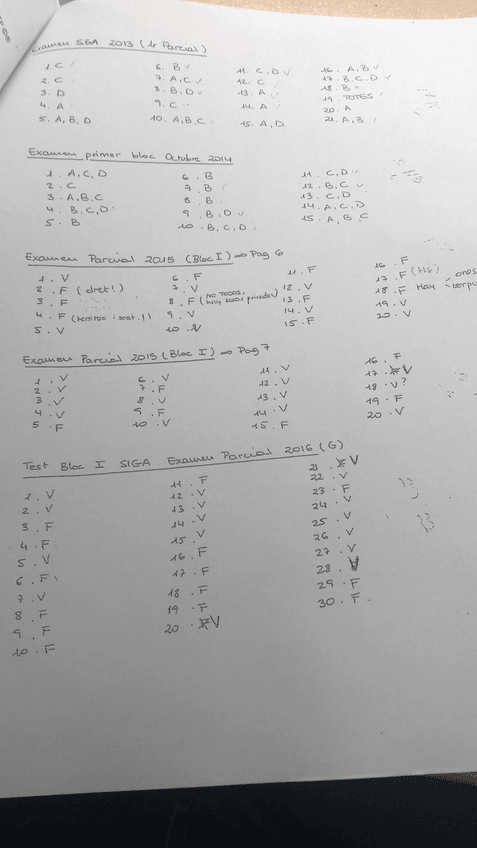 Examen SGA 2013 (1r Parcial)
1. C
2. C
3. D
4. A
5. A, B, D
6. B
7. A, C
8. B, D
9. C
10. A, B, C
11. C, D
12. C
13. A
14. A
15. A, D
16. A, B
17. B, C, D
18. B
19. TOTES
20. A
21. A, B
Examen primer bloc Octubre 2014
1. A, C, D
2. C
3. A, B, C
4. B, C, D
5. B
6. B
7. B
8. B
9. B, D
10. B, C, D
11. C, D
12. B, C
13. C, D
14. A, C, D
15. A, B, C
Examen Parcial 2015 (Bloc I) ⇒ Pag 6
1. V
2. F (dret!)
3. F
4. F
5. V
6. F
7. V
8. F (no todos, hay
9. V
10. V
11. F
12. V
13. F
14. V
15. F
16. F
17. F
18. F Hay
19. V
20. V
Examen Parcial 2015 (Bloc I) ⇒ Pag 7
1. V
2. V
3. V
4. V
5. F
6. V
7. F
8. V
9. F
10. V
11. V
12. V
13. V
14. V
15. F
16. F
17. V
18. V?
19. F
20. V
Test Bloc I SIGA Examen Parcial 2016 (G)
1. V
2. V
3. F
4. F
5. V
6. F
7. V
8. F
9. F
10. F
11. F
12. V
13. V
14. V
15. V
16. F
17. F
18. F
19. F
20. V
21. V
22. V
23. F
24. V
25. V
26. V
27. V
28. V
29. F
30. F